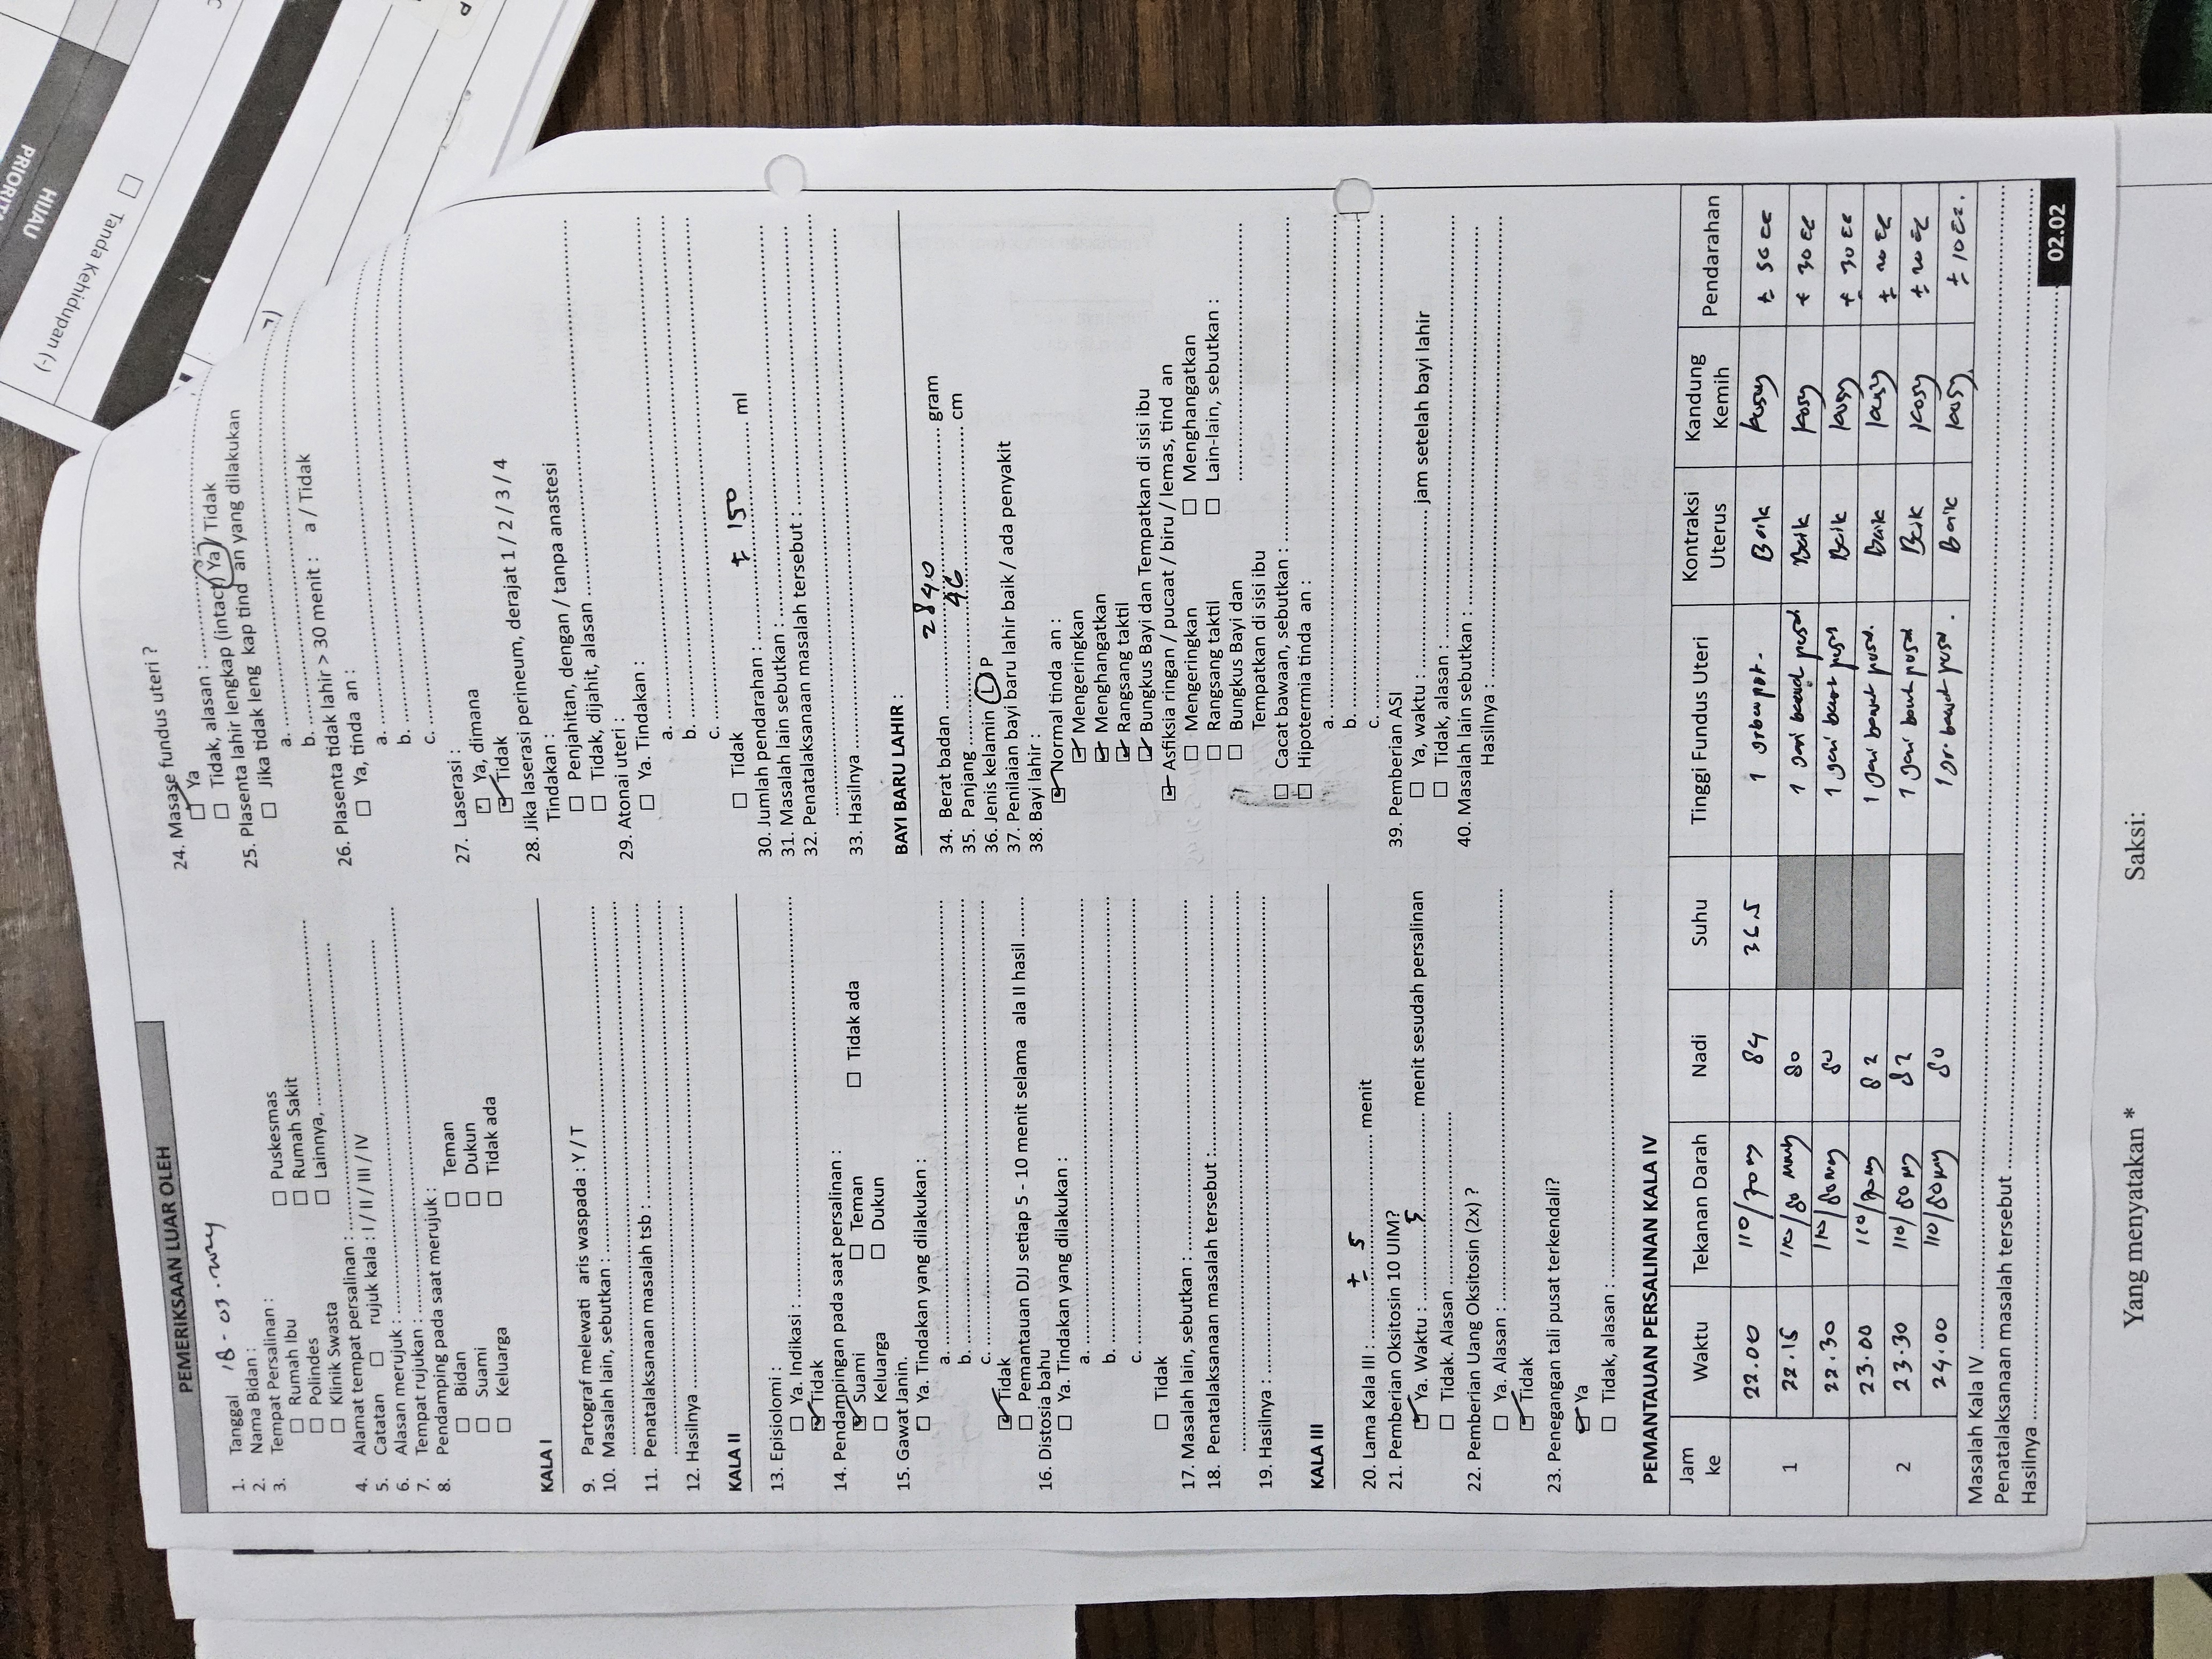 PEMERIKSAAN LUAR OLEH
1. Tanggal 18-03-2024
2. Nama Bidan :
3. Tempat Persalinan :
☐ Rumah Ibu ☐ Puskesmas
☐ Polindes ☐ Rumah Sakit
☐ Klinik Swasta ☐ Lainnya, ..........
4. Alamat tempat persalinan : ..........
5. Catatan ☐ rujuk kala : I / II / III / IV
6. Alasan merujuk : ..........
7. Tempat rujukan : ..........
8. Pendamping pada saat merujuk :
☐ Bidan ☐ Teman
☐ Suami ☐ Dukun
☐ Keluarga ☐ Tidak ada
KALA I
9. Partograf melewati aris waspada : Y / T
10. Masalah lain, sebutkan : ..........
11. Penatalaksanaan masalah tsb : ..........
12. Hasilnya ..........
KALA II
13. Episiolomi :
☐ Ya. Indikasi : ..........
☑ Tidak
14. Pendampingan pada saat persalinan :
☑ Suami ☐ Teman ☐ Tidak ada
☐ Keluarga ☐ Dukun
15. Gawat Janin.
☐ Ya. Tindakan yang dilakukan :
a. ..........
b. ..........
c. ..........
☑ Tidak
☐ Pemantauan DJJ setiap 5 - 10 menit selama ala II hasil ........
16. Distosia bahu
☐ Ya. Tindakan yang dilakukan :
a. ..........
b. ..........
c. ..........
☐ Tidak
17. Masalah lain, sebutkan : ..........
18. Penatalaksanaan masalah tersebut :..........
19. Hasilnya : ..........
KALA III
20. Lama Kala III : ± 5 menit
21. Pemberian Oksitosin 10 UIM?
☑ Ya. Waktu : 5 menit sesudah persalinan
☐ Tidak. Alasan ..........
22. Pemberian Uang Oksitosin (2x) ?
☐ Ya. Alasan : ..........
☑ Tidak
23. Penegangan tali pusat terkendali?
☑ Ya
☐ Tidak, alasan : ..........
24. Masase fundus uteri ?
☑ Ya
☐ Tidak, alasan : ..........
25. Plasenta lahir lengkap (intact) Ya / Tidak
☐ Jika tidak leng kap tind an yang dilakukan
a. ..........
b. ..........
26. Plasenta tidak lahir > 30 menit : a / Tidak
☐ Ya, tinda an :
a. ..........
b. ..........
c. ..........
27. Laserasi :
☐ Ya, dimana
☑ Tidak
28. Jika laserasi perineum, derajat 1 / 2 / 3 / 4
Tindakan :
☐ Penjahitan, dengan / tanpa anastesi
☐ Tidak, dijahit, alasan ..........
29. Atonai uteri :
☐ Ya. Tindakan :
a. ..........
b. ..........
c. ..........
☐ Tidak
30. Jumlah pendarahan : ± 150 ml
31. Masalah lain sebutkan : ..........
32. Penatalaksanaan masalah tersebut : ..........
33. Hasilnya ..........
BAYI BARU LAHIR :
34. Berat badan 2840 gram
35. Panjang 46 cm
36. Jenis kelamin L / P
37. Penilaian bayi baru lahir baik / ada penyakit
38. Bayi lahir :
☑ Normal tinda an :
☑ Mengeringkan
☑ Menghangatkan
☑ Rangsang taktil
☑ Bungkus Bayi dan Tempatkan di sisi ibu
☑ Asfiksia ringan / pucaat / biru / lemas, tind an
☐ Mengeringkan ☐ Menghangatkan
☐ Rangsang taktil ☐ Lain-lain, sebutkan :
☐ Bungkus Bayi dan ..........
Tempatkan di sisi ibu
☐ Cacat bawaan, sebutkan : ..........
☐ Hipotermia tinda an :
a. ..........
b. ..........
c. ..........
39. Pemberian ASI
☐ Ya, waktu : .......... jam setelah bayi lahir
☐ Tidak, alasan : ..........
40. Masalah lain sebutkan : ..........
Hasilnya : ..........
PEMANTAUAN PERSALINAN KALA IV
Jam ke Waktu Tekanan Darah Nadi Suhu Tinggi Fundus Uteri Kontraksi Uterus Kandung Kemih Pendarahan
1 22.00 110/70 84 36.5 1 Baik kosong ± 50 cc
22.15 110/80 mmHg 80 1 jari bawah pusat Baik kosong ± 30 cc
22.30 110/80 80 1 jari bawah pusat Baik kosong ± 30 cc
23.00 110/70 82 1 jari bawah pusat. Baik kosong ± 20 cc
2 23.30 110/80 82 1 jari bawah pusat Baik kosong ± 20 cc
24.00 110/80 80 1 jr. bawah pusat. Baik kosong ± 10 cc.
Masalah Kala IV ..........
Penatalaksanaan masalah tersebut ..........
Hasilnya ..........
02.02
Yang menyatakan * Saksi:
HIJAU
PRIORIT
☐ Tanda Kehidupan (-)